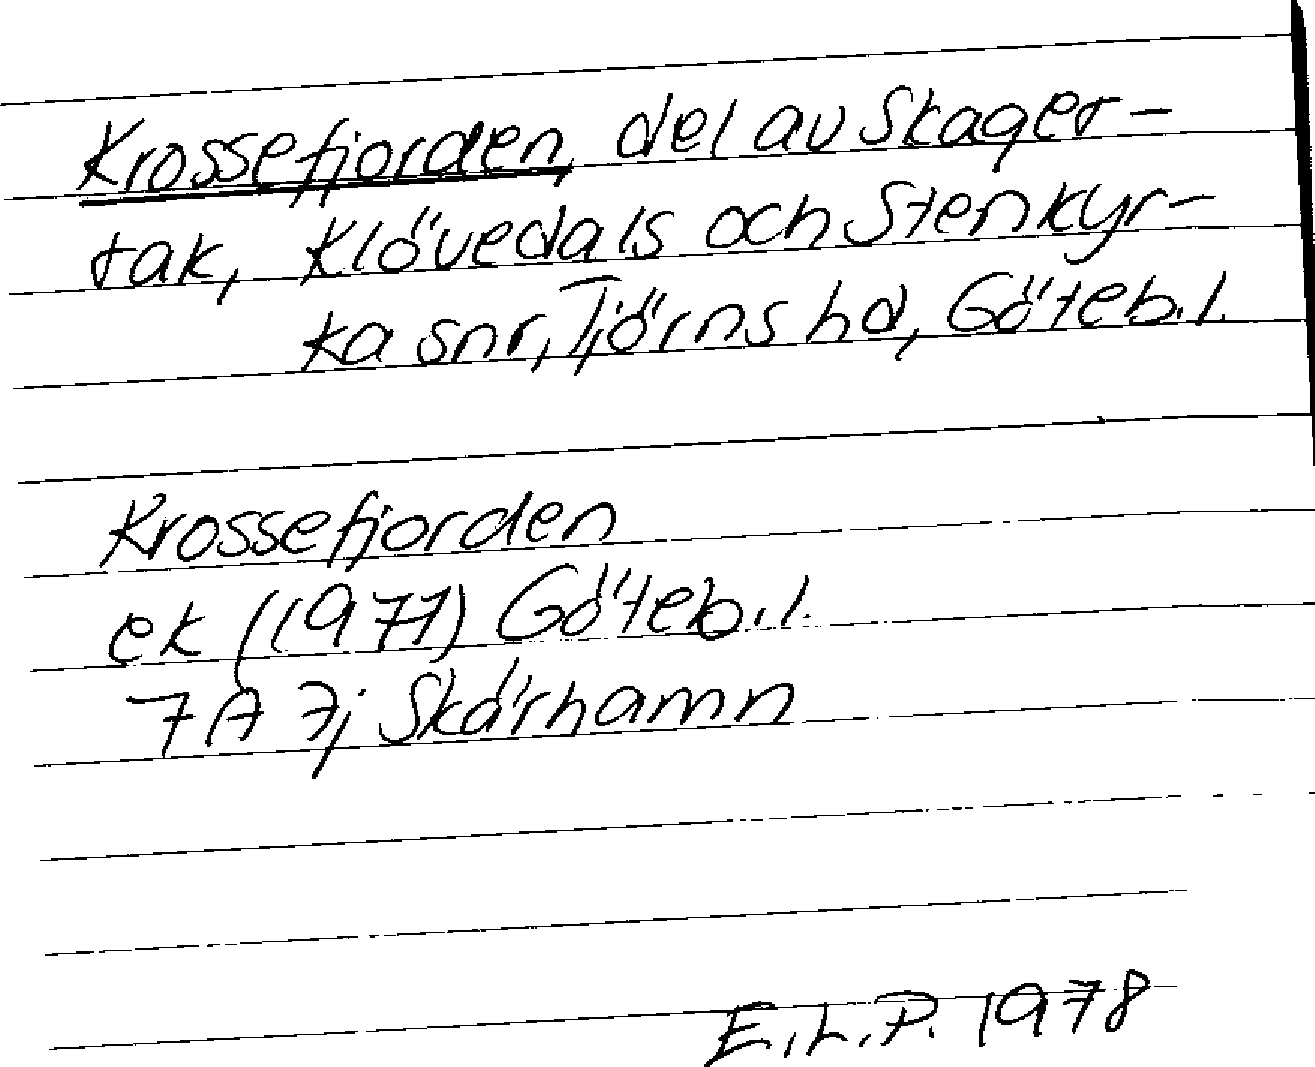 Krossefjorden, del av Skager-
rak, Klövedals och Stenkyr-
ka snr, Tjörns hd, Göteb. l.
Krossefjorden
ek (1977) Göteb. l.
7A 7j Skärhamn
E.L.P. 1978